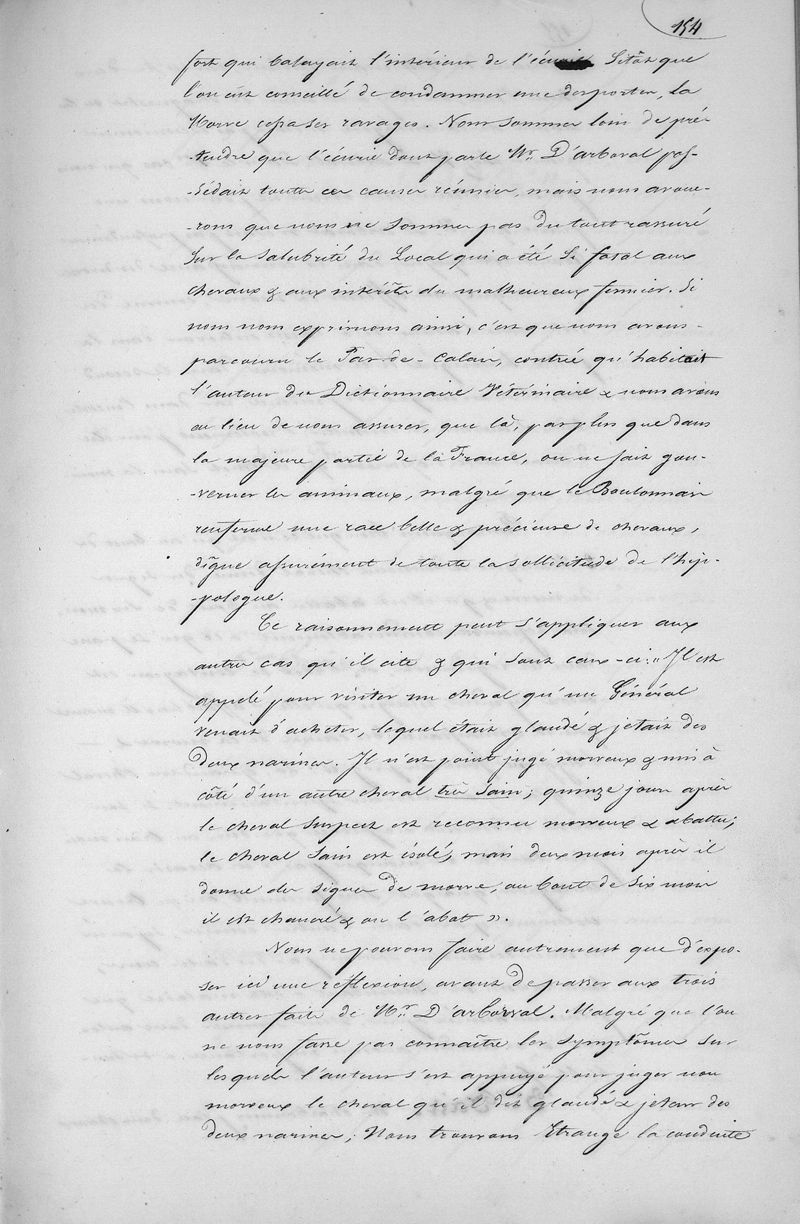 154
fort qui balayait l'intérieur de l'écurie Sitôt que
l'on eut conseillé de condamner une des portes, la
Morve cessa ses ravages. Nous sommes loin de pré-
-tendre que l'écurie dont parle Mr. D'arboval pos-
-sédait toutes ces causes réunies, mais nous avoue-
-rons que nous ne sommes pas du tout rassuré
sur la salubrité du Local qui a été si fatal aux
chevaux & aux intérêts du malheureux fermier. Si
nous nous exprimons ainsi, c'est que nous avons-
parcouru le Pas-de-Calais, contrée qu'habitait
l'auteur du Dictionnaire Vétérinaire & nous avons
eu lieu de nous assurer, que là, pas plus que dans
la majeure partie de la France, on ne sait gou-
-verner les animaux, malgré que le Boulonnais
renferme une race belle & précieuse de chevaux,
digne assurément de toute la sollicitude de l'hip-
-pologue.
Ce raisonnement peut s'appliquer aux
autres cas qu'il cite & qui sont ceux-ci: « Il est
appelé pour visiter un cheval qu'un Général
venait d'acheter, lequel était glandé & jetait des
deux narines. Il n'est point jugé morveux & mis à
côté d'un autre cheval très sain; quinze jours après
le cheval suspect est reconnu morveux & abattu;
le cheval sain est isolé, mais deux mois après il
donne des signes de morve, au bout de six mois
il est chancré & on l'abat ».
Nous ne pouvons faire autrement que d'expo-
ser ici une réflexion, avant de passer aux trois
autres faits de Mr. D'arborval. Malgré que l'on
ne nous fasse pas connaître les symptômes sur
lesquels l'auteur s'est appuyé pour juger non
morveux le cheval qu'il dit glandé & jetant des
deux narines; Nous trouvons Etrange la conduite